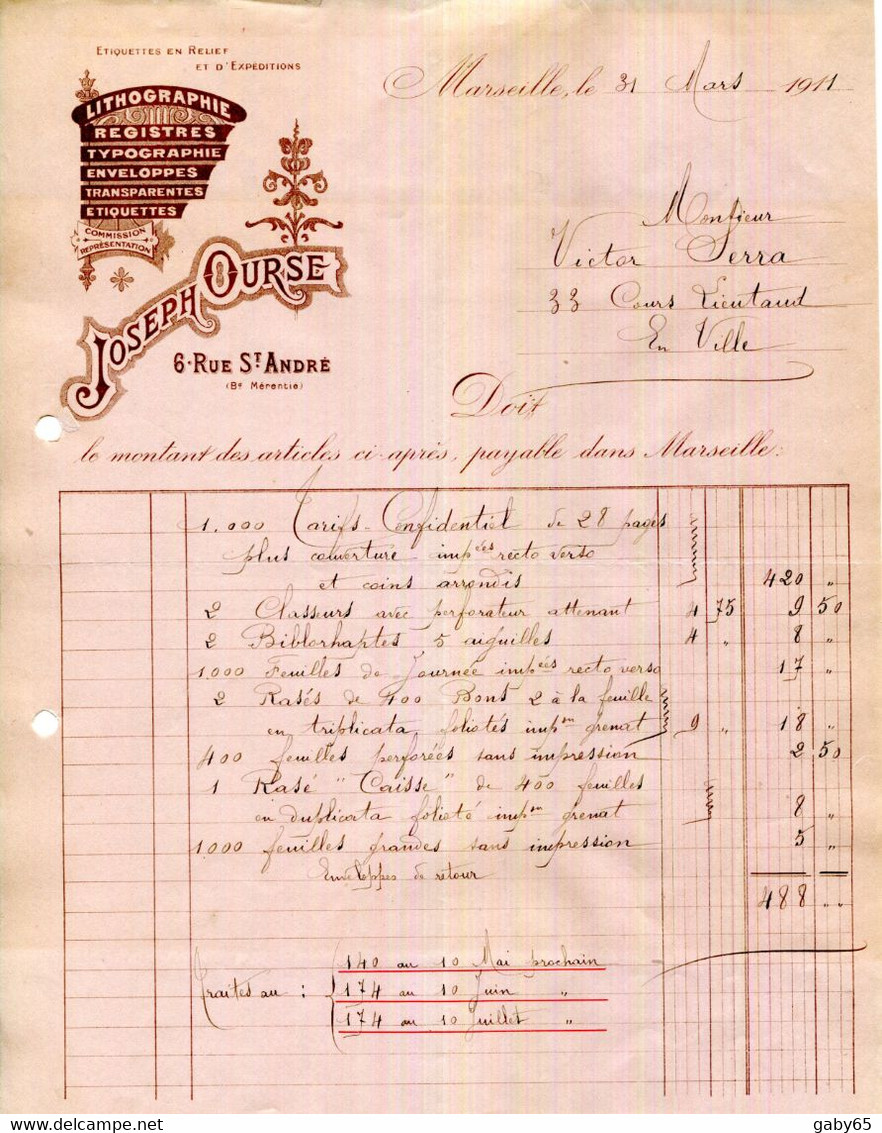 ETIQUETTES EN RELIEF
ET D'EXPÉDITIONS
LITHOGRAPHIE
REGISTRES
TYPOGRAPHIE
ENVELOPPES
TRANSPARENTES
ETIQUETTES
COMMISSION
REPRÉSENTATION
JOSEPH OURSE
6·RUE ST ANDRÉ
(Bd Mérentie)
Marseille, le 31 Mars 1911
Monsieur
Victor Serra
33 Cours Lieutaud
En Ville
Doit
le montant des articles ci-après, payable dans Marseille:
1.000 Tarifs-Confidentiel de 28 pages
plus couverture impées recto verso
et coins arrondis 420 "
2 Classeurs avec perforateur attenant 4 75 9 50
2 Biblorhaptes 5 aiguilles 4 " 8 "
1.000 Feuilles de Journée impées recto verso 17 "
2 Rasés de 400 Bons 2 à la feuille
en triplicata foliotés impon grenat 9 " 18 "
400 feuilles perforées sans impression 2 50
1 Rasé "Caisse" de 400 feuilles
en duplicata folioté impon grenat 8 "
1000 feuilles grandes sans impression 5 "
Enveloppes de retour
488 "
Traites au :
140 au 10 Mai prochain
174 au 10 Juin "
174 au 10 Juillet "
delcampe.net
gaby65